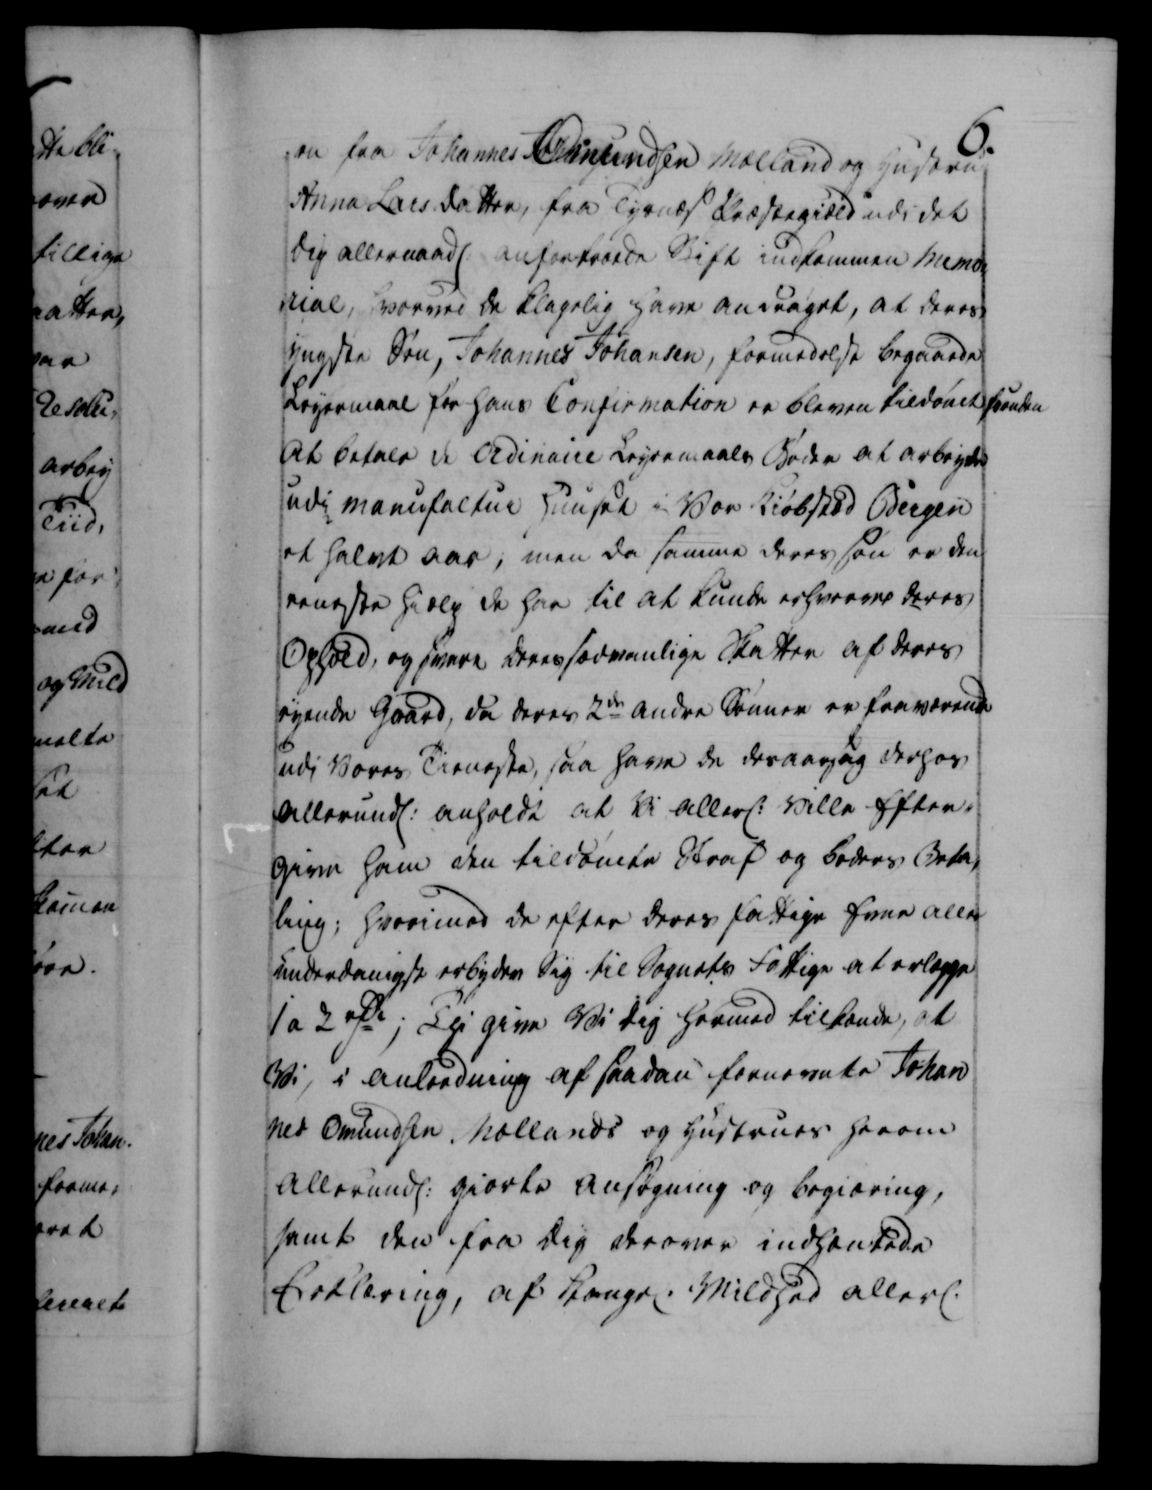 6.
en fra Johannes Omundsen Mælland og Hustrue
Anna Lars Datter, fra Tysnæs Præstegield udi det
dig allernaad: anfortroede Stift indkommen Memo-
rial, hvorved de klagelig have andraget, at deres
yngste Søn, Johannes Johansen, formedelst begaaede
Leyermaal før hans Confirmation er bleven tildömt, foruden
at betale de Ordinaire Leyermaals Bøder at arbeyde
udi manufactur Huuset i Vor Kiøbstad Bergen
et halvt aar, men da samme deres søn er den
eeneste Hielp de har til at kunde erhverve deres
Ophold, og svare deres sædvanlige Skatter af deres
eyende Gaard, da deres 2de andre Sönner er fraværende
udi Vores Tieneste, saa have de desaarsag derhos
allerund: anholdt at Vi allern: Ville Efter-
give ham den tildömte Straf og boders Beta-
ling; hvorimod de efter deres fattige Evne aller
underdanigst erbyder Sig til Sognets Fattige at erlegge
1 a 2 rdr; Thi give Vi dig hermed tilkiende, at
Vi, i anledning af saadan fornevnte Johan
nes Omundsen Mællands og Hustrues herom
Allerund: giorte ansøgning og begiering,
samt den fra dig derover indhentede
Erklæring, af Kongel: Mildhed allern:
tte bli-
over
tillige
aatter,
var
Resolu-
arbey
Tiid,
for
og Mild
melte
ter
nes Johan-
forme-
eret